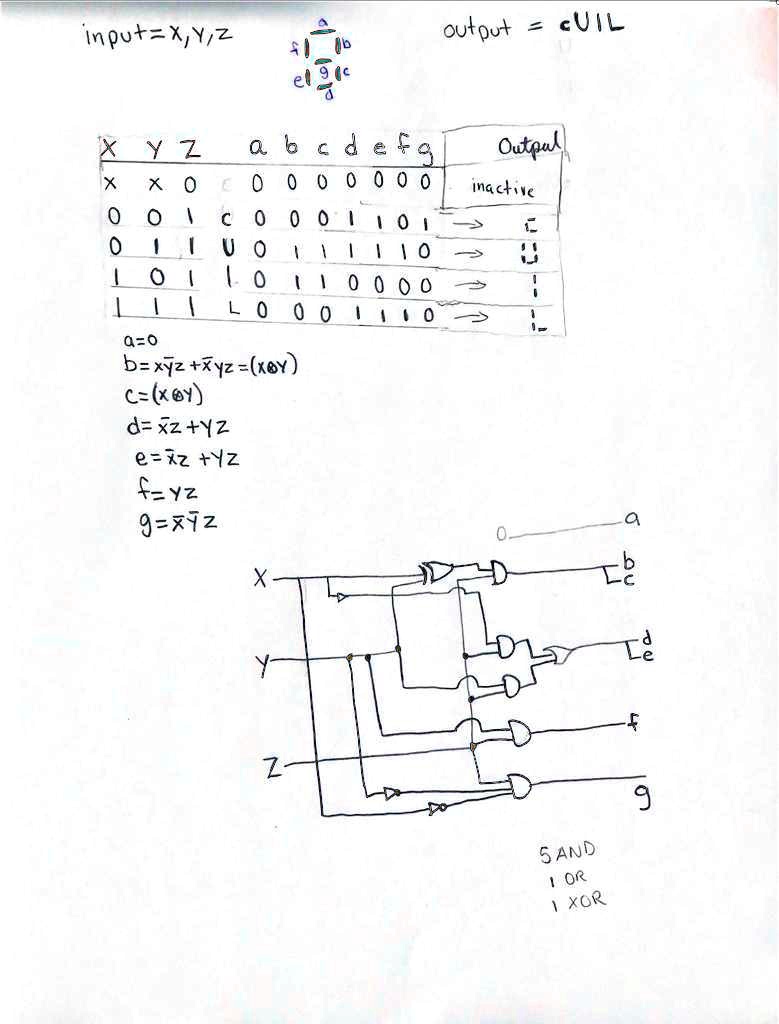 input=X,Y,Z
output = cUIL
a
f b
g
e c
d
X Y Z a b c d e f g Output
x x 0 c 0 0 0 0 0 0 0 inactive
0 0 1 c 0 0 0 1 1 0 1 →
0 1 1 U 0 1 1 1 1 1 0 →
1 0 1 I 0 1 1 0 0 0 0 →
1 1 1 L 0 0 0 1 1 1 0 →
a=0
b=xȳz+x̄yz=(x⊕y)
c=(x⊕y)
d=x̄z+yz
e=x̄z+yz
f=yz
g=x̄ȳz
0 a
X b
c
d
Y e
f
Z
g
5 AND
1 OR
1 XOR